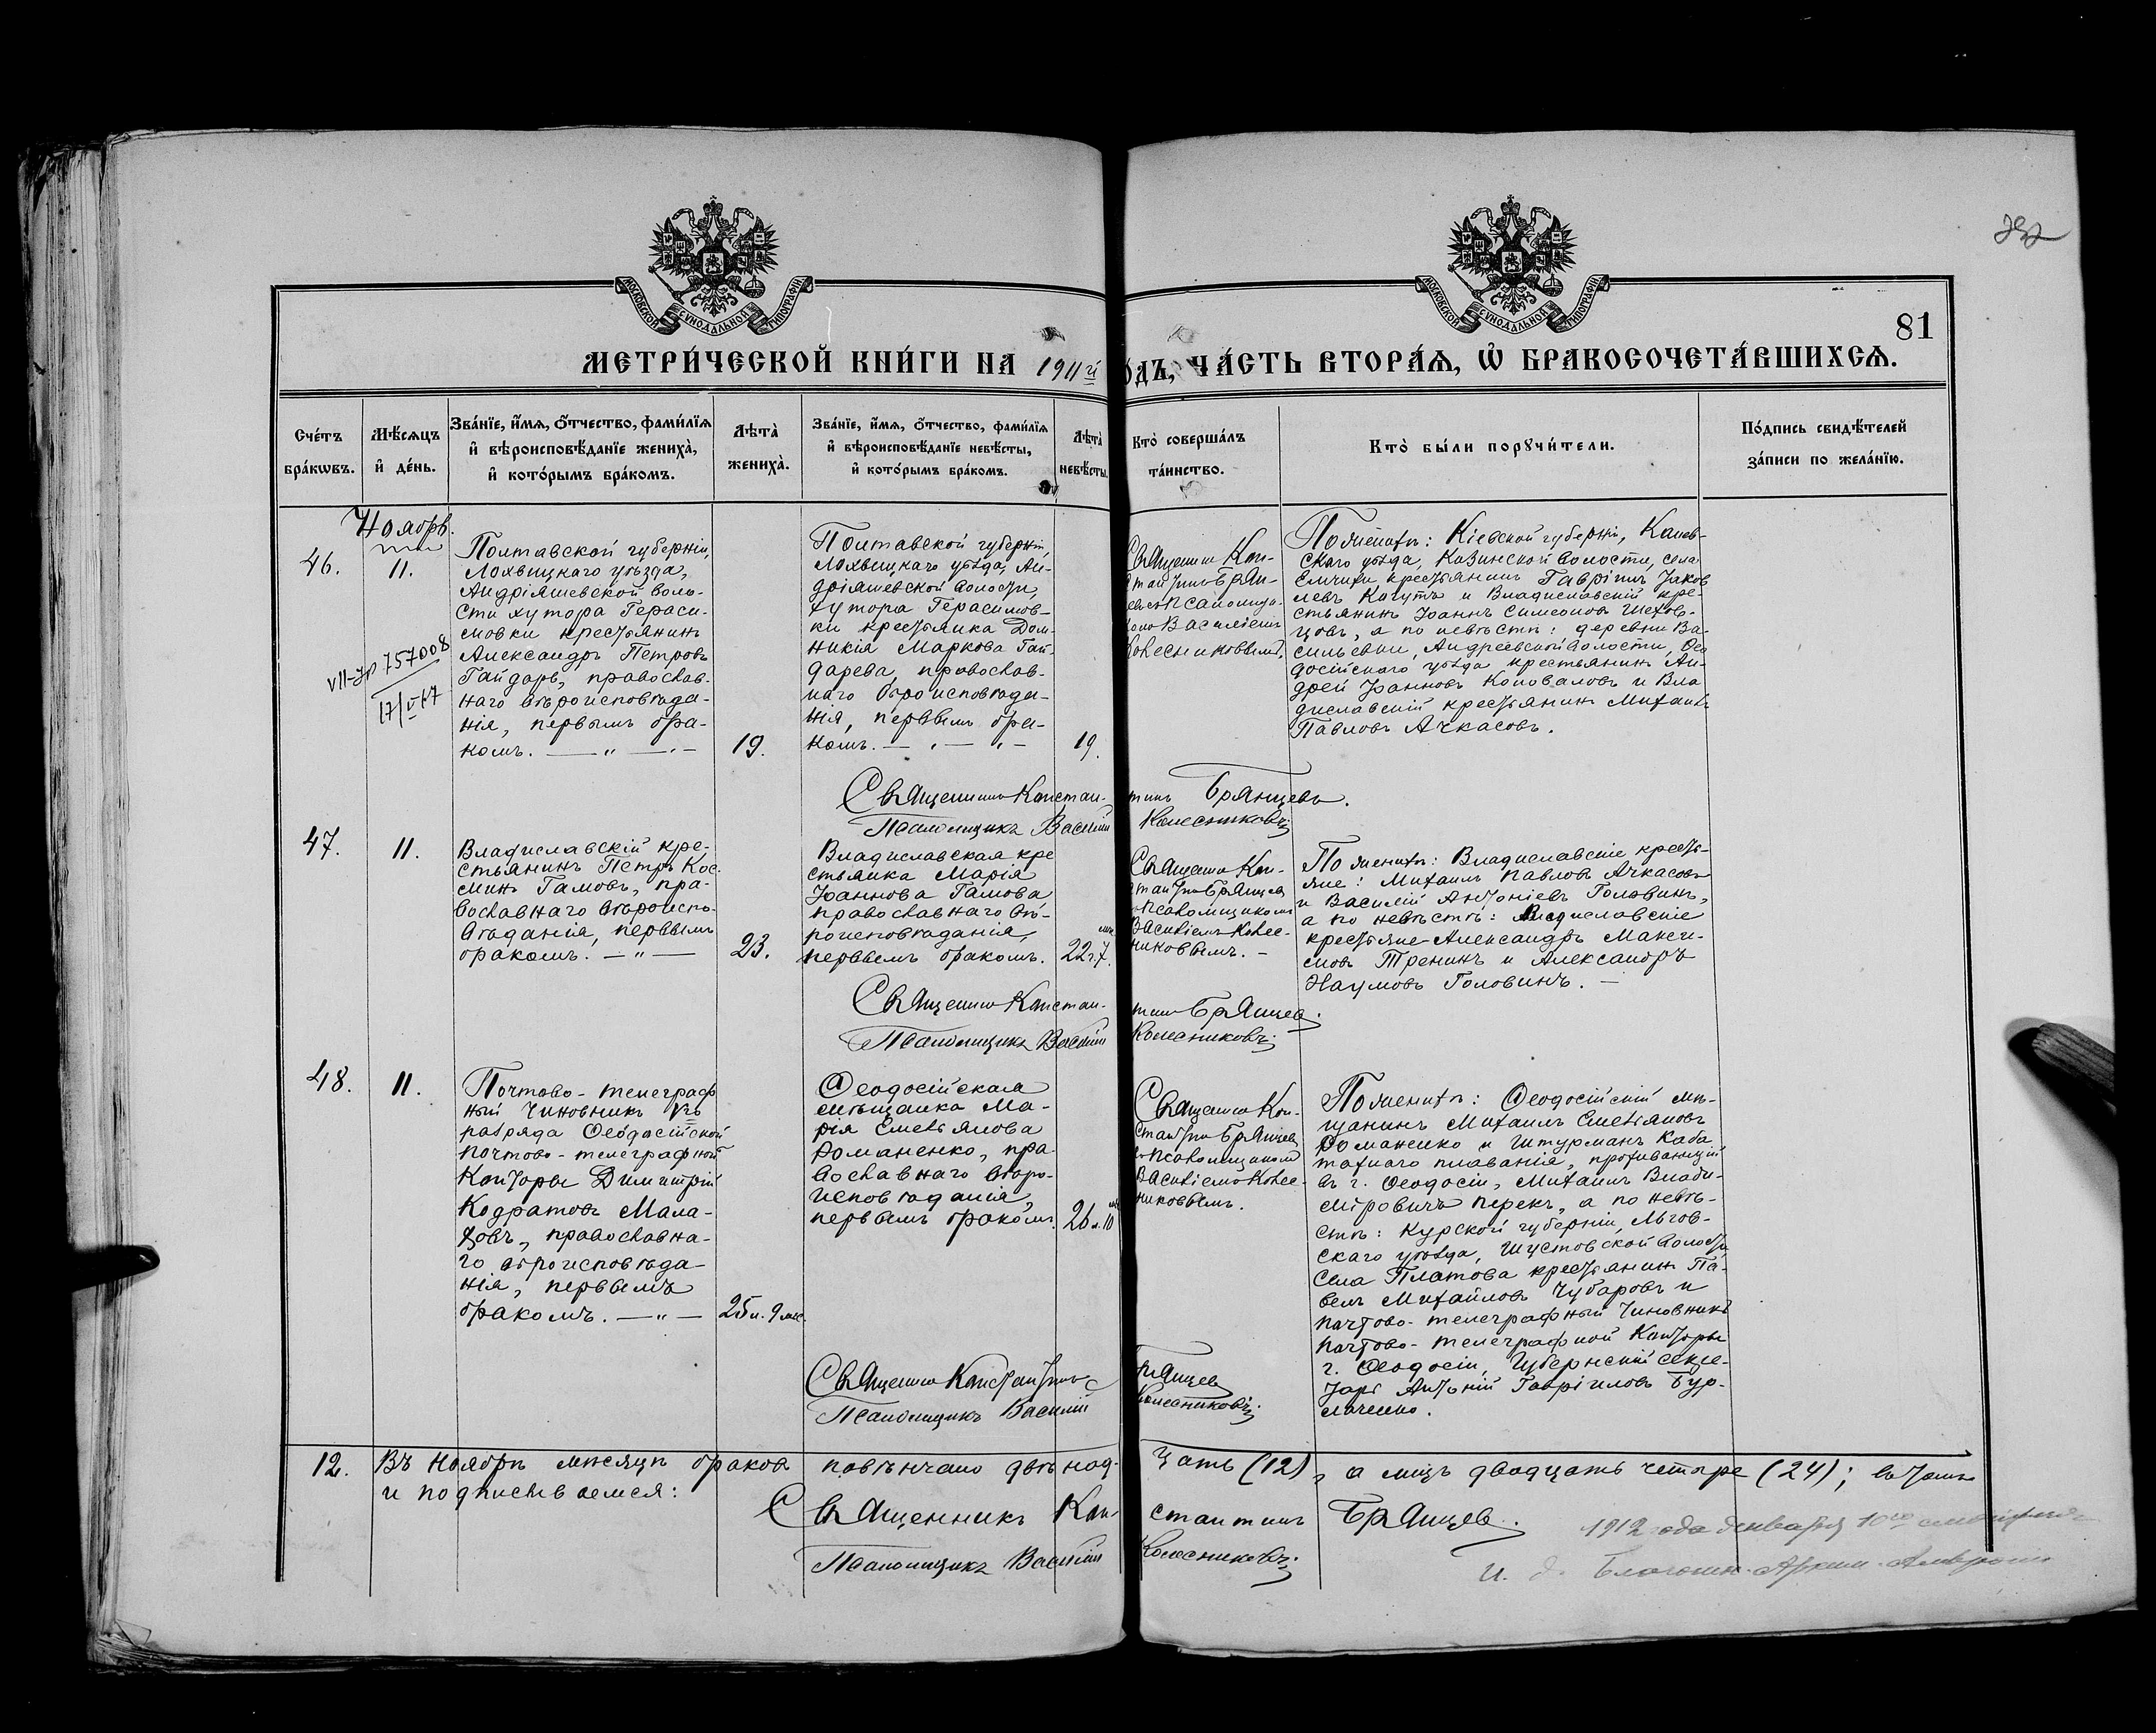 МОСКОВСКОЙ СѴНОДАЛЬНОЙ ТИПОГРАФІИ
МОСКОВСКОЙ СѴНОДАЛЬНОЙ ТИПОГРАФІИ
81
МЕТРИ́ЧЕСКОЙ КНИ́ГИ НА 1911й
О́ДЪ, ЧА́СТЬ ВТОРА́Ѧ, Ѽ БРАКОСОЧЕТА́ВШИХСѦ.
Сче́тъ
бра́кѡвъ.
Мѣ́сѧцъ
и҆ де́нь.
Зва́нїе, и҆́мѧ, ѻ҆́тчество, фами́лїѧ
и҆ вѣроисповѣ́данїе жениха̀,
и҆ кото́рымъ бра́комъ.
Лѣта̀
жениха̀.
Зва́нїе, и҆́мѧ, ѻ҆́тчество, фами́лїѧ
и҆ вѣроисповѣ́данїе невѣ́сты,
и҆ кото́рымъ бра́комъ.
Лѣта̀
невѣ́сты.
Кто̀ соверша́лъ
та́инство.
Кто̀ бы́ли порꙋчи́тели.
По́дпись свидѣ́телей
за́писи по жела́нїю.
Ноябрь.
46.
11.
VII-ЯР 757008
17/V-67
Полтавской губерніи,
Лохвицкаго уѣзда,
Андріяшевской воло-
сти хутора Гераси-
мовки крестьянинъ
Александръ Петровъ
Гайдарь, православ-
наго вѣроисповѣда-
нія, первымъ бра-
комъ. — „ — „ —
19.
Полтавской губерніи,
Лохвицкаго уѣзда, Ан-
дріяшевской волости,
хутора Герасимов-
ки крестьянка Дом-
никія Маркова Гай-
дарева, православ-
наго вѣроисповѣда-
нія, первымъ бра-
комъ. — „ — „ —
19.
Священникъ Кон-
стантинъ Брян-
цевъ съ псаломщи-
комъ Василіемъ
Колесниковымъ.
По женихѣ: Кіевской губерніи, Канев-
скаго уѣзда, Козинской волости, села
Емчихи крестьянинъ Гавріилъ Яков
левъ Когутъ и Владиславскій кре-
стьянинъ Іоаннъ Симеоновъ Шехов-
цовъ, а по невѣстѣ: деревни Ва-
сильевки, Андреевской волости, Ѳео
досійскаго уѣзда крестьянинъ Ан-
дрей Іоанновъ Коноваловъ и Вла
диславскій крестьянинъ Михаилъ
Павловъ Ачкасовъ.
Священникъ Константинъ Брянцевъ.
Псаломщикъ Василій Колесниковъ
47.
11.
Владиславскій кре-
стьянинъ Петръ Кос-
минъ Гамовъ, пра-
вославнаго вѣроиспо-
вѣданія, первымъ
бракомъ. — „ —
23.
Владиславская кре
стьянка Марія
Іоаннова Гамова
православнаго вѣ-
роисповѣданія,
первымъ бракомъ.
22 г. 7 мѣс.
Священникъ Кон-
стантинъ Брянцевъ
съ псаломщикомъ
Василіемъ Колес-
никовымъ. —
По женихѣ: Владиславскіе кресть-
яне: Михаилъ Павловъ Ачкасовъ
и Василій Антоніевъ Головинъ,
а по невѣстѣ: Владиславскіе
крестьяне Александръ Макси-
мовъ Тренинъ и Александръ
Наумовъ Головинъ. —
Священникъ Константинъ Брянцевъ.
Псаломщикъ Василій Колесниковъ
48.
11.
Почтово-телеграф
ный чиновникъ VI го
разряда Ѳеодосійской
почтово-телеграфной
Конторы Димитрій
Кодратовъ Мала-
ховъ, православна-
го вѣроисповѣда-
нія, первымъ
бракомъ. — „ —
25 л. 9 мѣс.
Ѳеодосійская
мѣщанка Ма-
рія Емельянова
Романенко, пра-
вославнаго вѣро-
исповѣданія,
первымъ бракомъ.
26 л. 10 мѣс
Священникъ Кон-
стантинъ Брянцевъ
съ псаломщикомъ
Василіемъ Колес-
никовымъ.
По женихѣ: Ѳеодосійскій мѣ-
щанинъ Михаилъ Емельяновъ
Романенко и штурманъ Каба
тажнаго плаванія, проживающій
въ г. Ѳеодосіи, Михаилъ Влади-
міровичъ Перекъ, а по невѣ-
стѣ: Курской губерніи, Льгов-
скаго уѣзда, Шустовской волости
села Платова крестьянинъ Па-
велъ Михайловъ Чубаровъ и
почтово-телеграфный чиновникъ
почтово-телеграфной Конторы
г. Ѳеодосіи, Губернскій секре-
тарь Антоній Гавріиловъ Бур-
лаченко.
Священникъ Константинъ Брянцевъ
Псаломщикъ Василій Колесниковъ
12. Въ ноябрѣ мѣсяцѣ браковъ повѣнчано двѣнад-
цать (12), а лицъ двадцать четыре (24); въ томъ
и подписываемся:
Священникъ Константинъ Брянцевъ.
Псаломщикъ Василій Колесниковъ
1912 года Января 10го
И. д. Благочин.